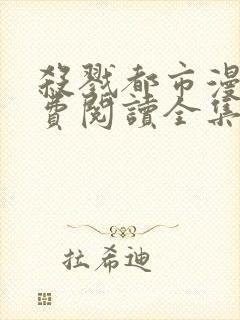 殺戮都市漫
費閱讀全集
拉希迪